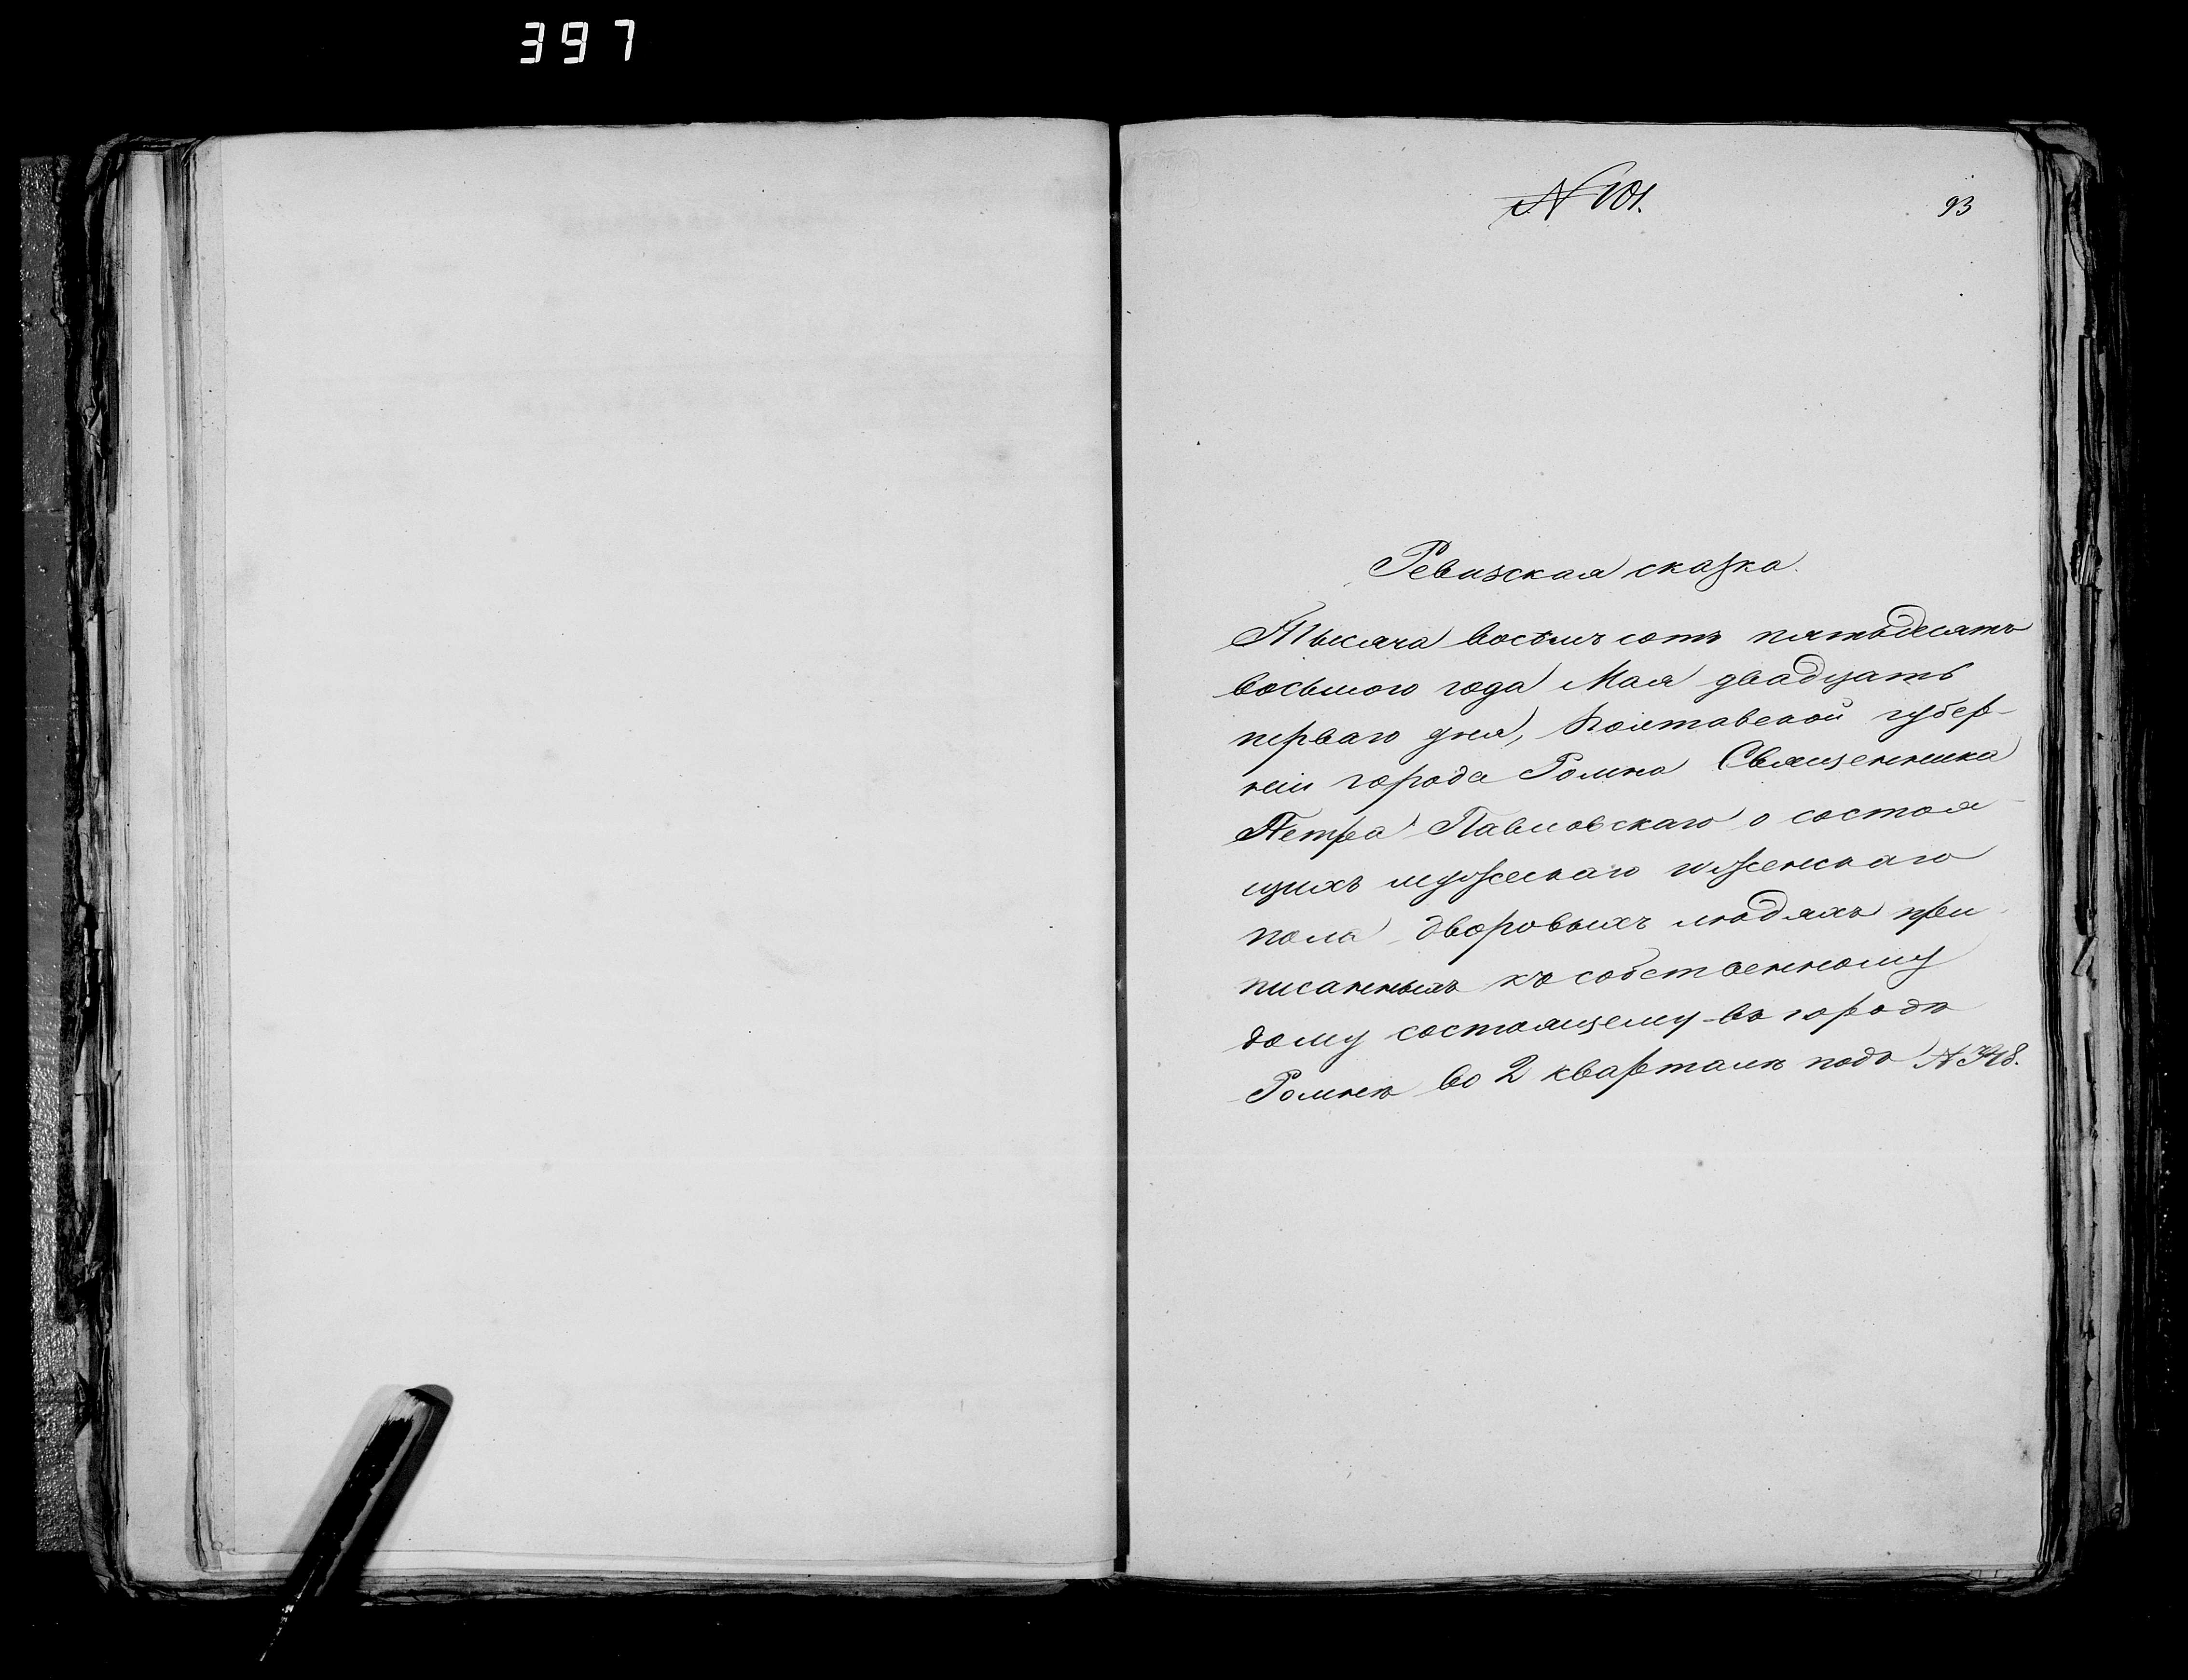 397
№ 101.
93
Ревизская сказка.
Тысяча восемь сотъ пятьдесятъ
восьмого года Мая двадцать
перваго дня, Полтавской губер-
ніи города Ромна Священника
Петра Павловскаго о состоя-
щихъ мужескаго и женскаго
пола дворовыхъ людяхъ при
писанныхъ къ собственному
дому состоящему въ городѣ
Ромнѣ во 2 кварталѣ подъ №